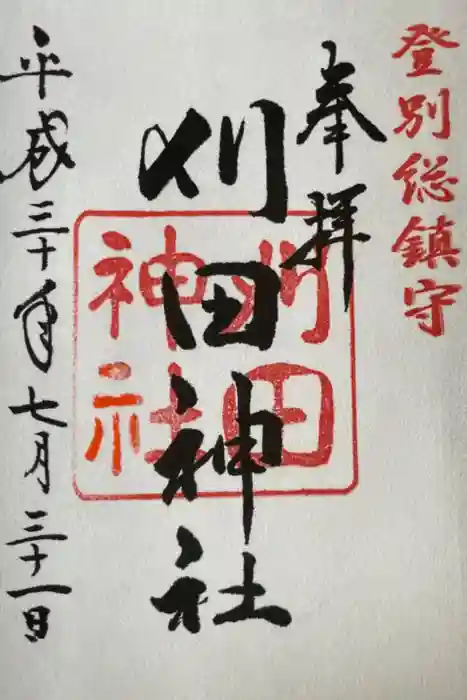 登別総鎮守
奉拝
刈田神社
刈田
神社
平成三十年七月三十一日